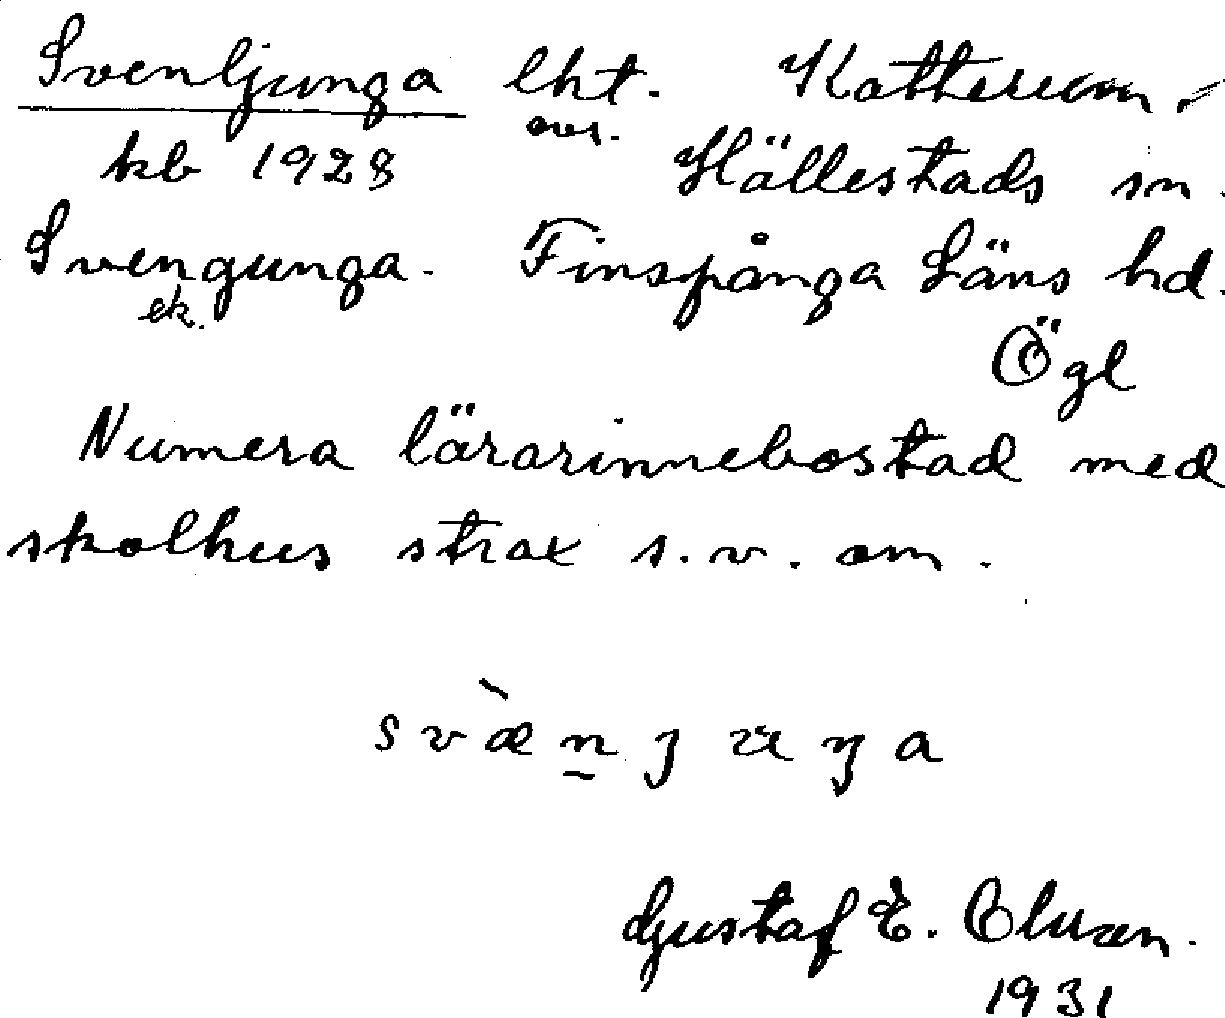 Svenljunga lht. Katterum,
avs.
kb 1928 Hällestads sn.
Svengunga. Finspånga Läns hd.
ek.
Ögl
Numera lärarinnebostad med
skolhus strax s.v. om.
svæ̀n̰juŋa
Gustaf E.
1931